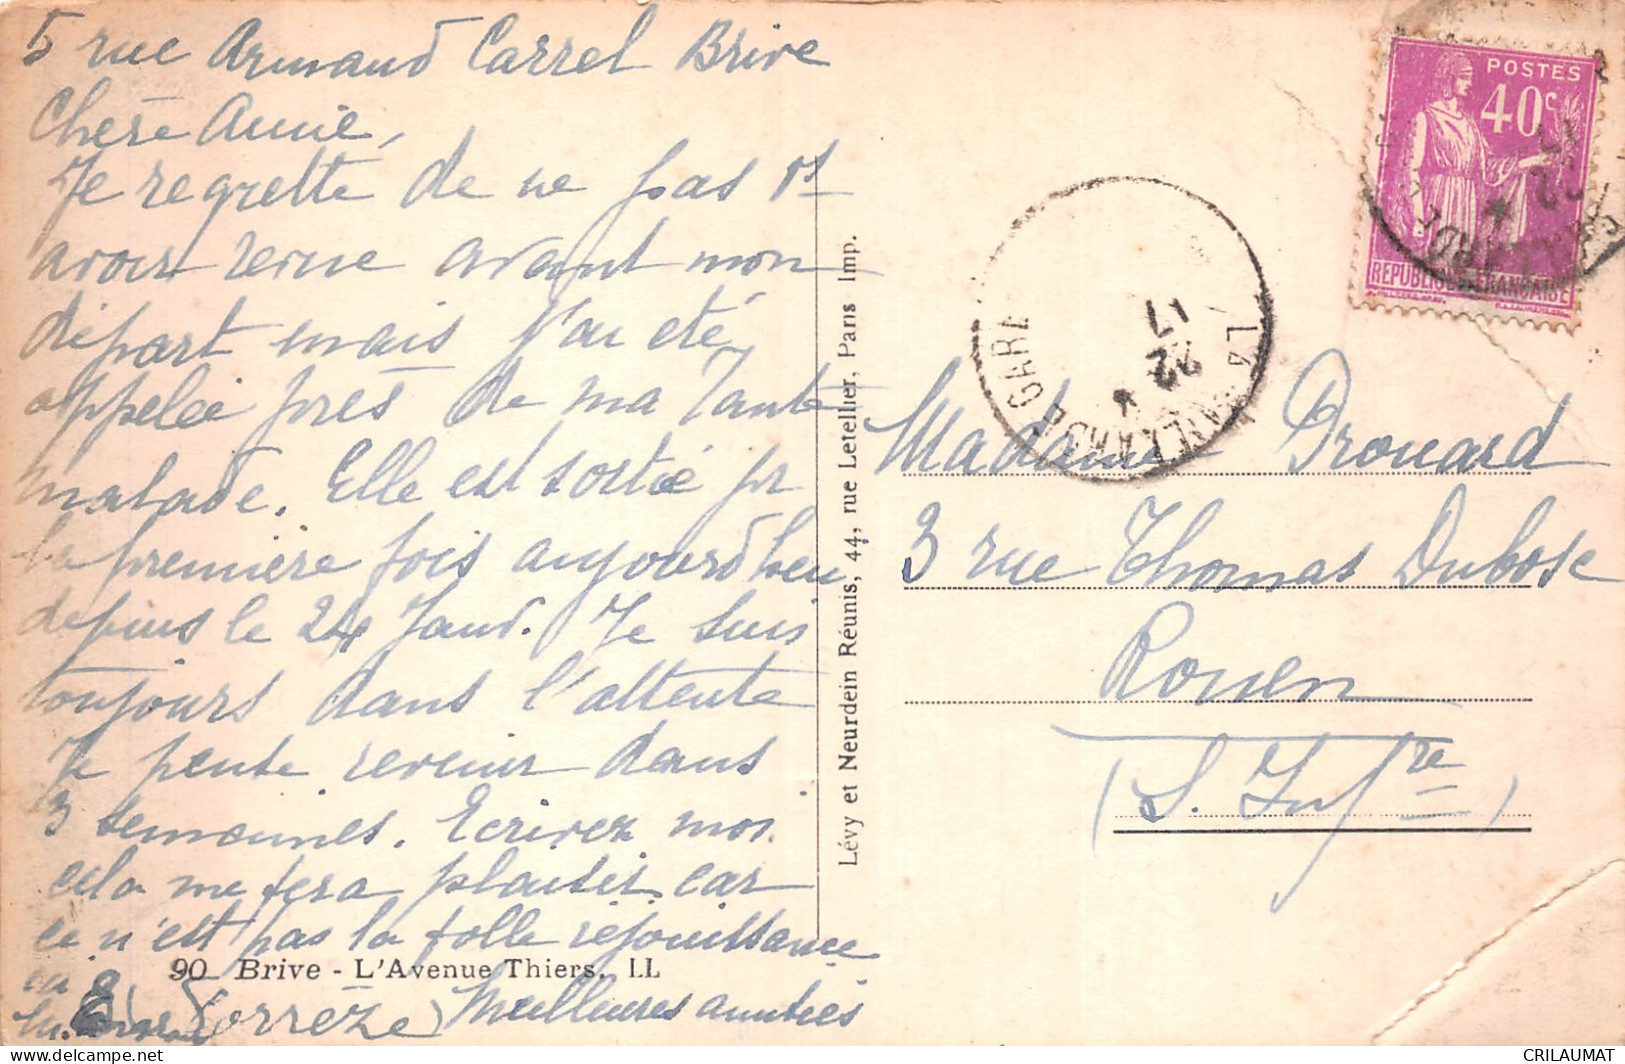 5 rue Armand Carrel Brive
Chère Annie,
Je regrette de ne pas vs
avoir revue avant mon
départ mais j'ai été
appelée près de ma Tante
malade. Elle est sortie pr
la première fois aujourd'heu
depuis le 24 Janv. Je suis
toujours dans l'attente
Je pense revenir dans
3 semaines. Ecrivez moi
cela me fera plaisir car
ce n'est pas la folle réjouissance
ici
90 Brive - L'Avenue Thiers. LL
(Corrèze) Meilleures amitiés
Lévy et Neurdein Réunis, 44, rue Letellier, Paris Imp.
POSTES
40c
REPUBLIQUE FRANÇAISE
GARE
17
22
Madame Drouard
3 rue Thomas Dubosc
Rouen
(S. Infre)
Delcampe.net
CRILAUMAT